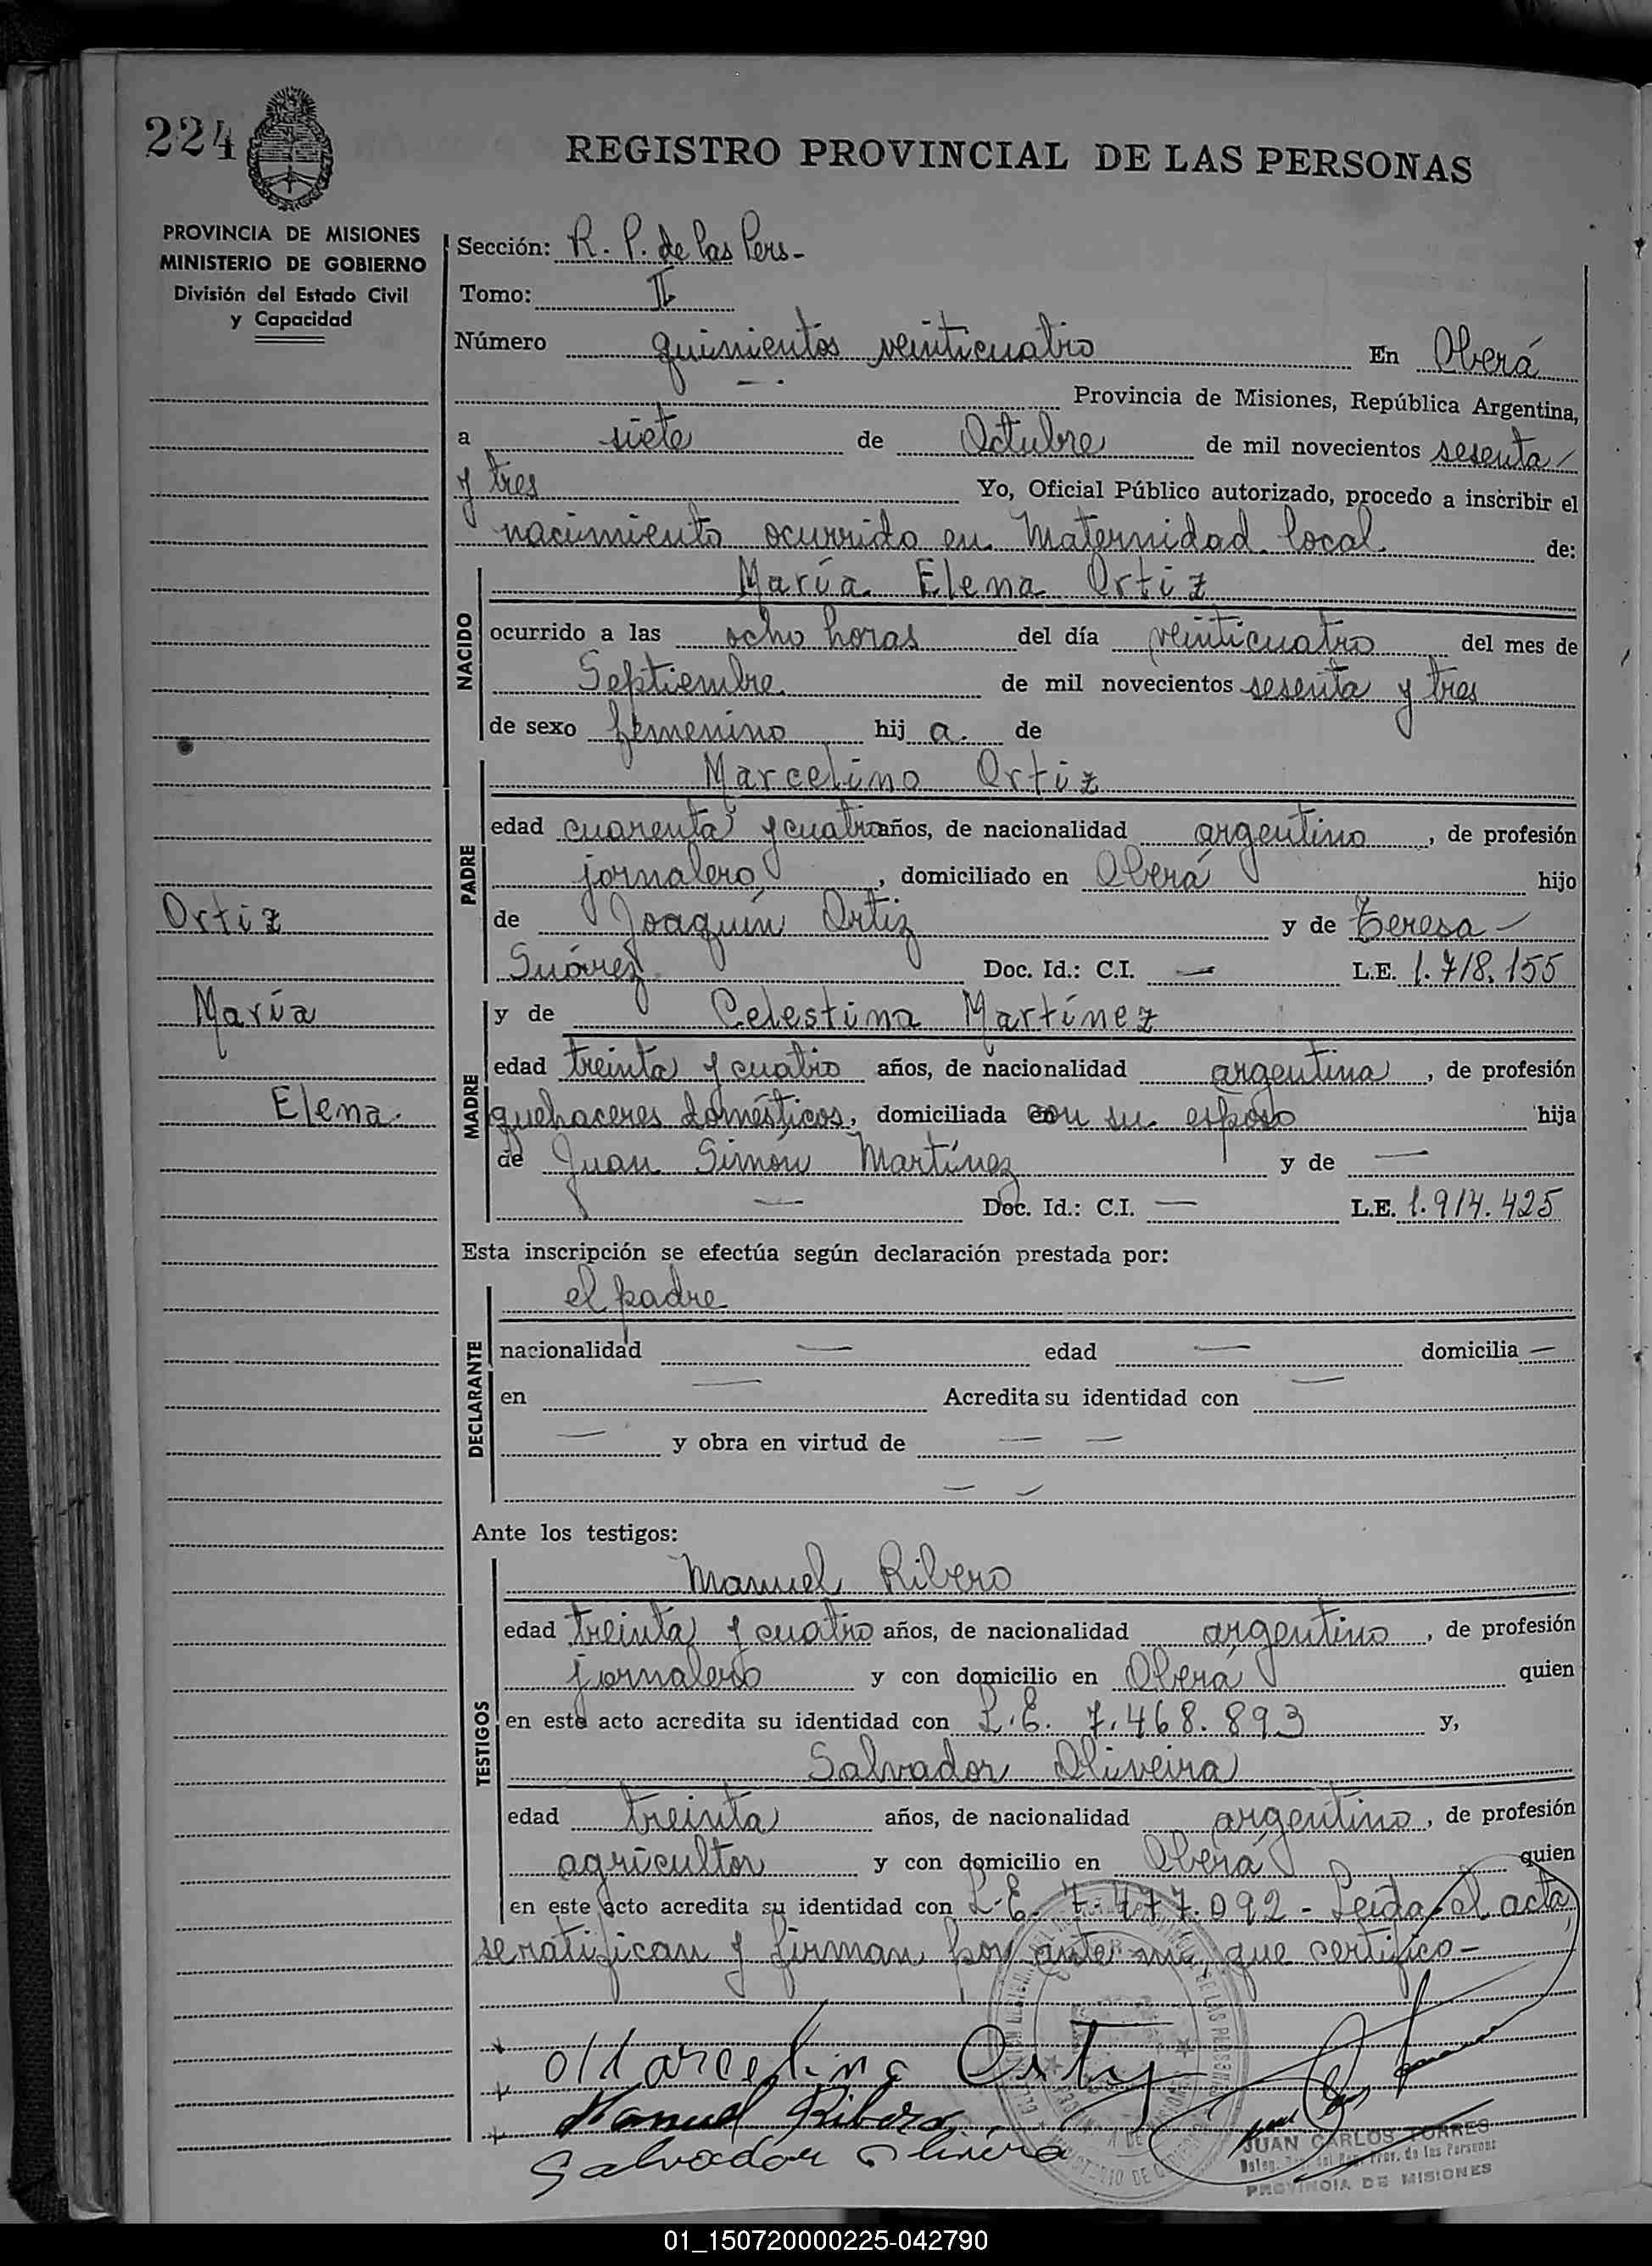 224
REGISTRO PROVINCIAL DE LAS PERSONAS
PROVINCIA DE MISIONES
MINISTERIO DE GOBIERNO
División del Estado Civil
y Capacidad
Sección: R. P. de las Pers-
Tomo: II
Número quinientos veinticuatro En Oberá
Provincia de Misiones, República Argentina,
a siete de Octubre de mil novecientos sesenta
y tres Yo, Oficial Público autorizado, procedo a inscribir el
nacimiento ocurrido en Maternidad local de:
NACIDO
María Elena Ortiz
ocurrido a las ocho horas del día veinticuatro del mes de
Septiembre de mil novecientos sesenta y tres
de sexo femenino hij a. de
PADRE
Marcelino Ortiz
edad cuarenta y cuatro años, de nacionalidad argentino, de profesión
jornalero, domiciliado en Oberá hijo
de Joaquín Ortiz y de Teresa -
Suárez Doc. Id.: C.I. — L.E. 1.718.155
Ortiz
María
Elena.
MADRE
y de Celestina Martínez
edad treinta y cuatro años, de nacionalidad argentina, de profesión
quehaceres domésticos, domiciliada con su esposo hija
de Juan Simón Martínez y de —
— Doc. Id.: C.I. — L.E. 1.914.425
Esta inscripción se efectúa según declaración prestada por:
DECLARANTE
el padre
nacionalidad — edad — domicilia —
en — Acredita su identidad con —
— y obra en virtud de — —
— —
Ante los testigos:
TESTIGOS
Manuel Ribero
edad treinta y cuatro años, de nacionalidad argentino, de profesión
jornalero y con domicilio en Oberá quien
en este acto acredita su identidad con L.E. 7.468.893 y,
Salvador Oliveira
edad treinta años, de nacionalidad argentino, de profesión
agricultor y con domicilio en Oberá quien
en este acto acredita su identidad con L.E. 7.477.092 - Leída el acta
se ratifican y firman por ante mí, que certifico -
Marcelino Ortiz
Manuel Ribero
Salvador Olivera
JUAN CARLOS TORRES
Prov. de las Personas
PROVINCIA DE MISIONES
01_150720000225-042790